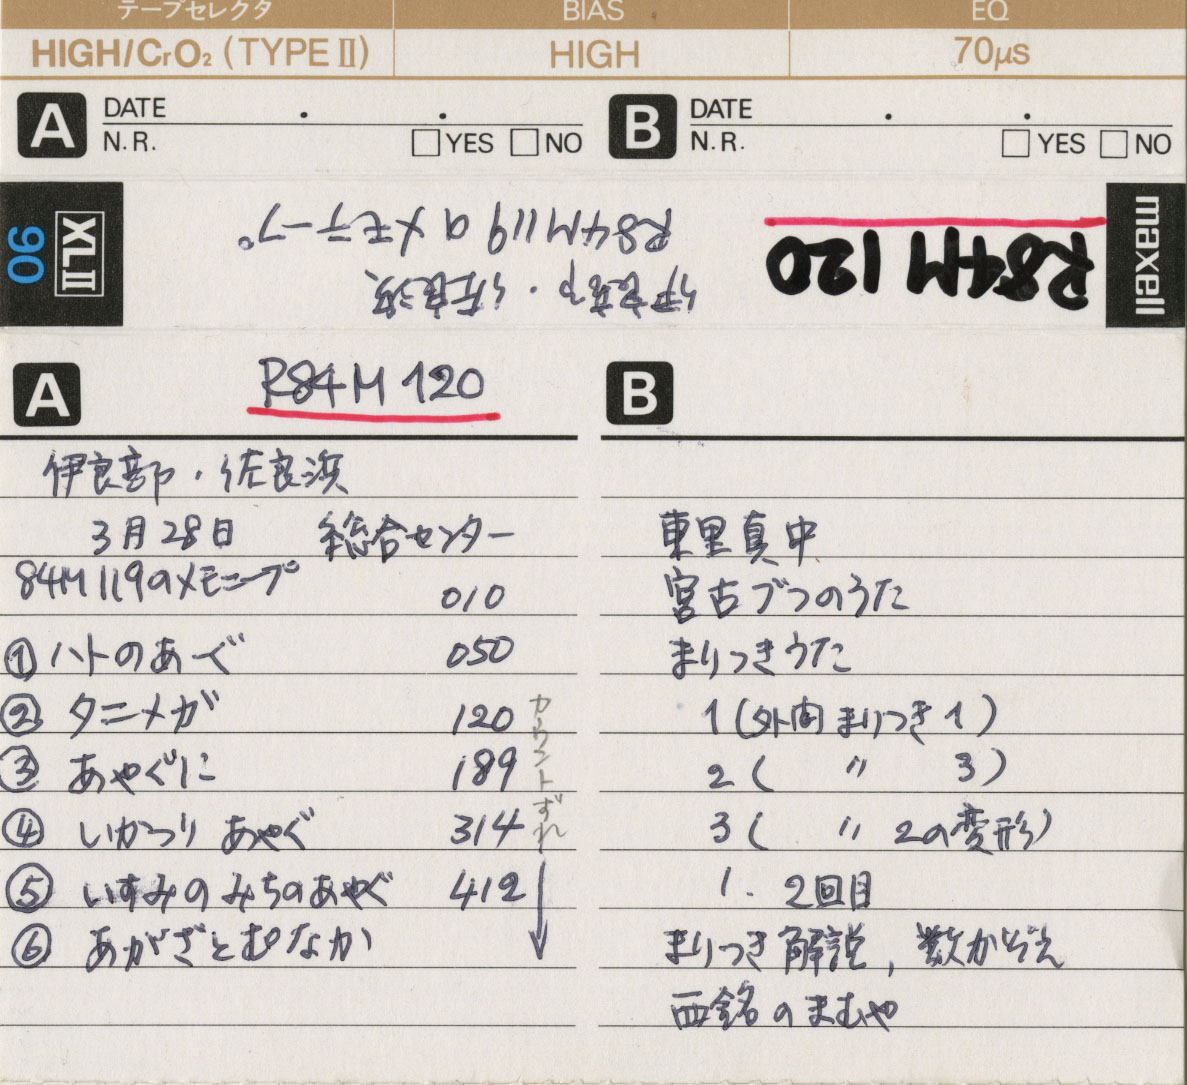 テープセレクタ BIAS EQ
HIGH/CrO₂ (TYPE II) HIGH 70μs
A DATE . .
N.R. YES NO
B DATE . .
N.R. YES NO
maxell
R84M 120
伊良部・佐良浜
R84M119のメモテープ
XLII
90
A R84M 120
伊良部・佐良浜
3月28日 総合センター
84M119のメモテープ 010
① ハトのあーぐ 050
② タニメガ 120
③ あやぐに 189
④ いかつり あやぐ 314
⑤ いすみのみちのあやぐ 412
⑥ あがざとむなか
カウントずれ
B
東里真中
宮古ブつのうた
まりつきうた
1 (外間まりつき1)
2 ( 〃 3)
3 ( 〃 2の変形)
1. 2回目
まりつき解説, 数かぞえ
西銘のまむや